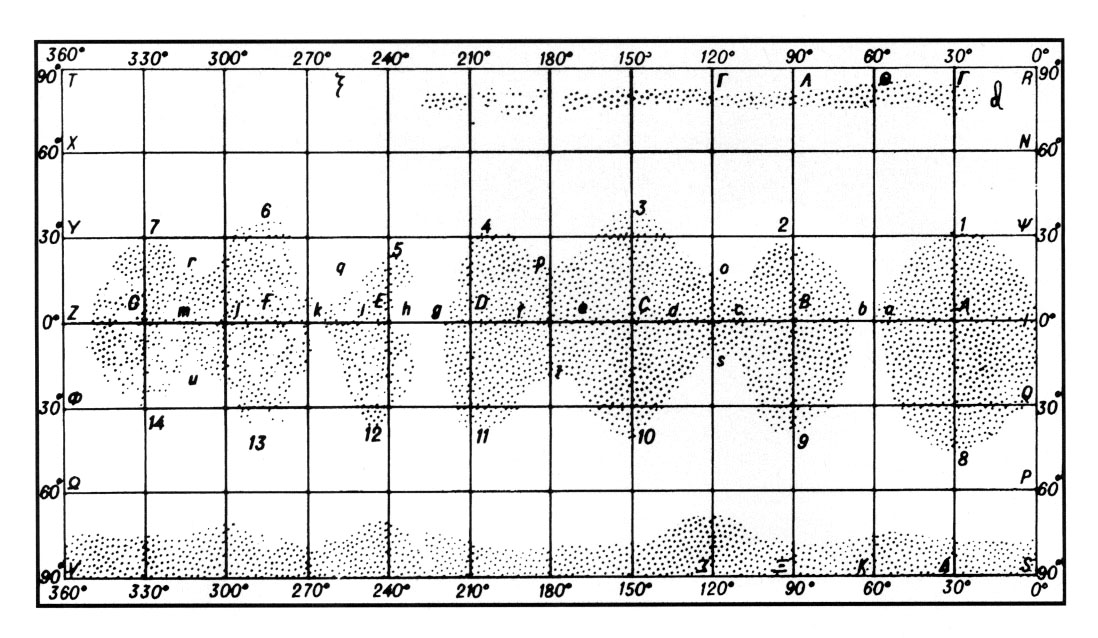 360° 330° 300° 270° 240° 210° 180° 150° 120° 90° 60° 30° 0°
90° T ξ Γ A Θ Γ d R 90°
60° X N 60°
6 3
30° Y 7 5 4 2 1 Ψ 30°
r q p o
0° Z G m j F k i E h g D f e C d c B b a A I 0°
u t s
30° Φ Q 30°
14 13 12 11 10 9 8
60° Ω P 60°
90° V Σ Ξ K Δ S 90°
360° 330° 300° 270° 240° 210° 180° 150° 120° 90° 60° 30° 0°